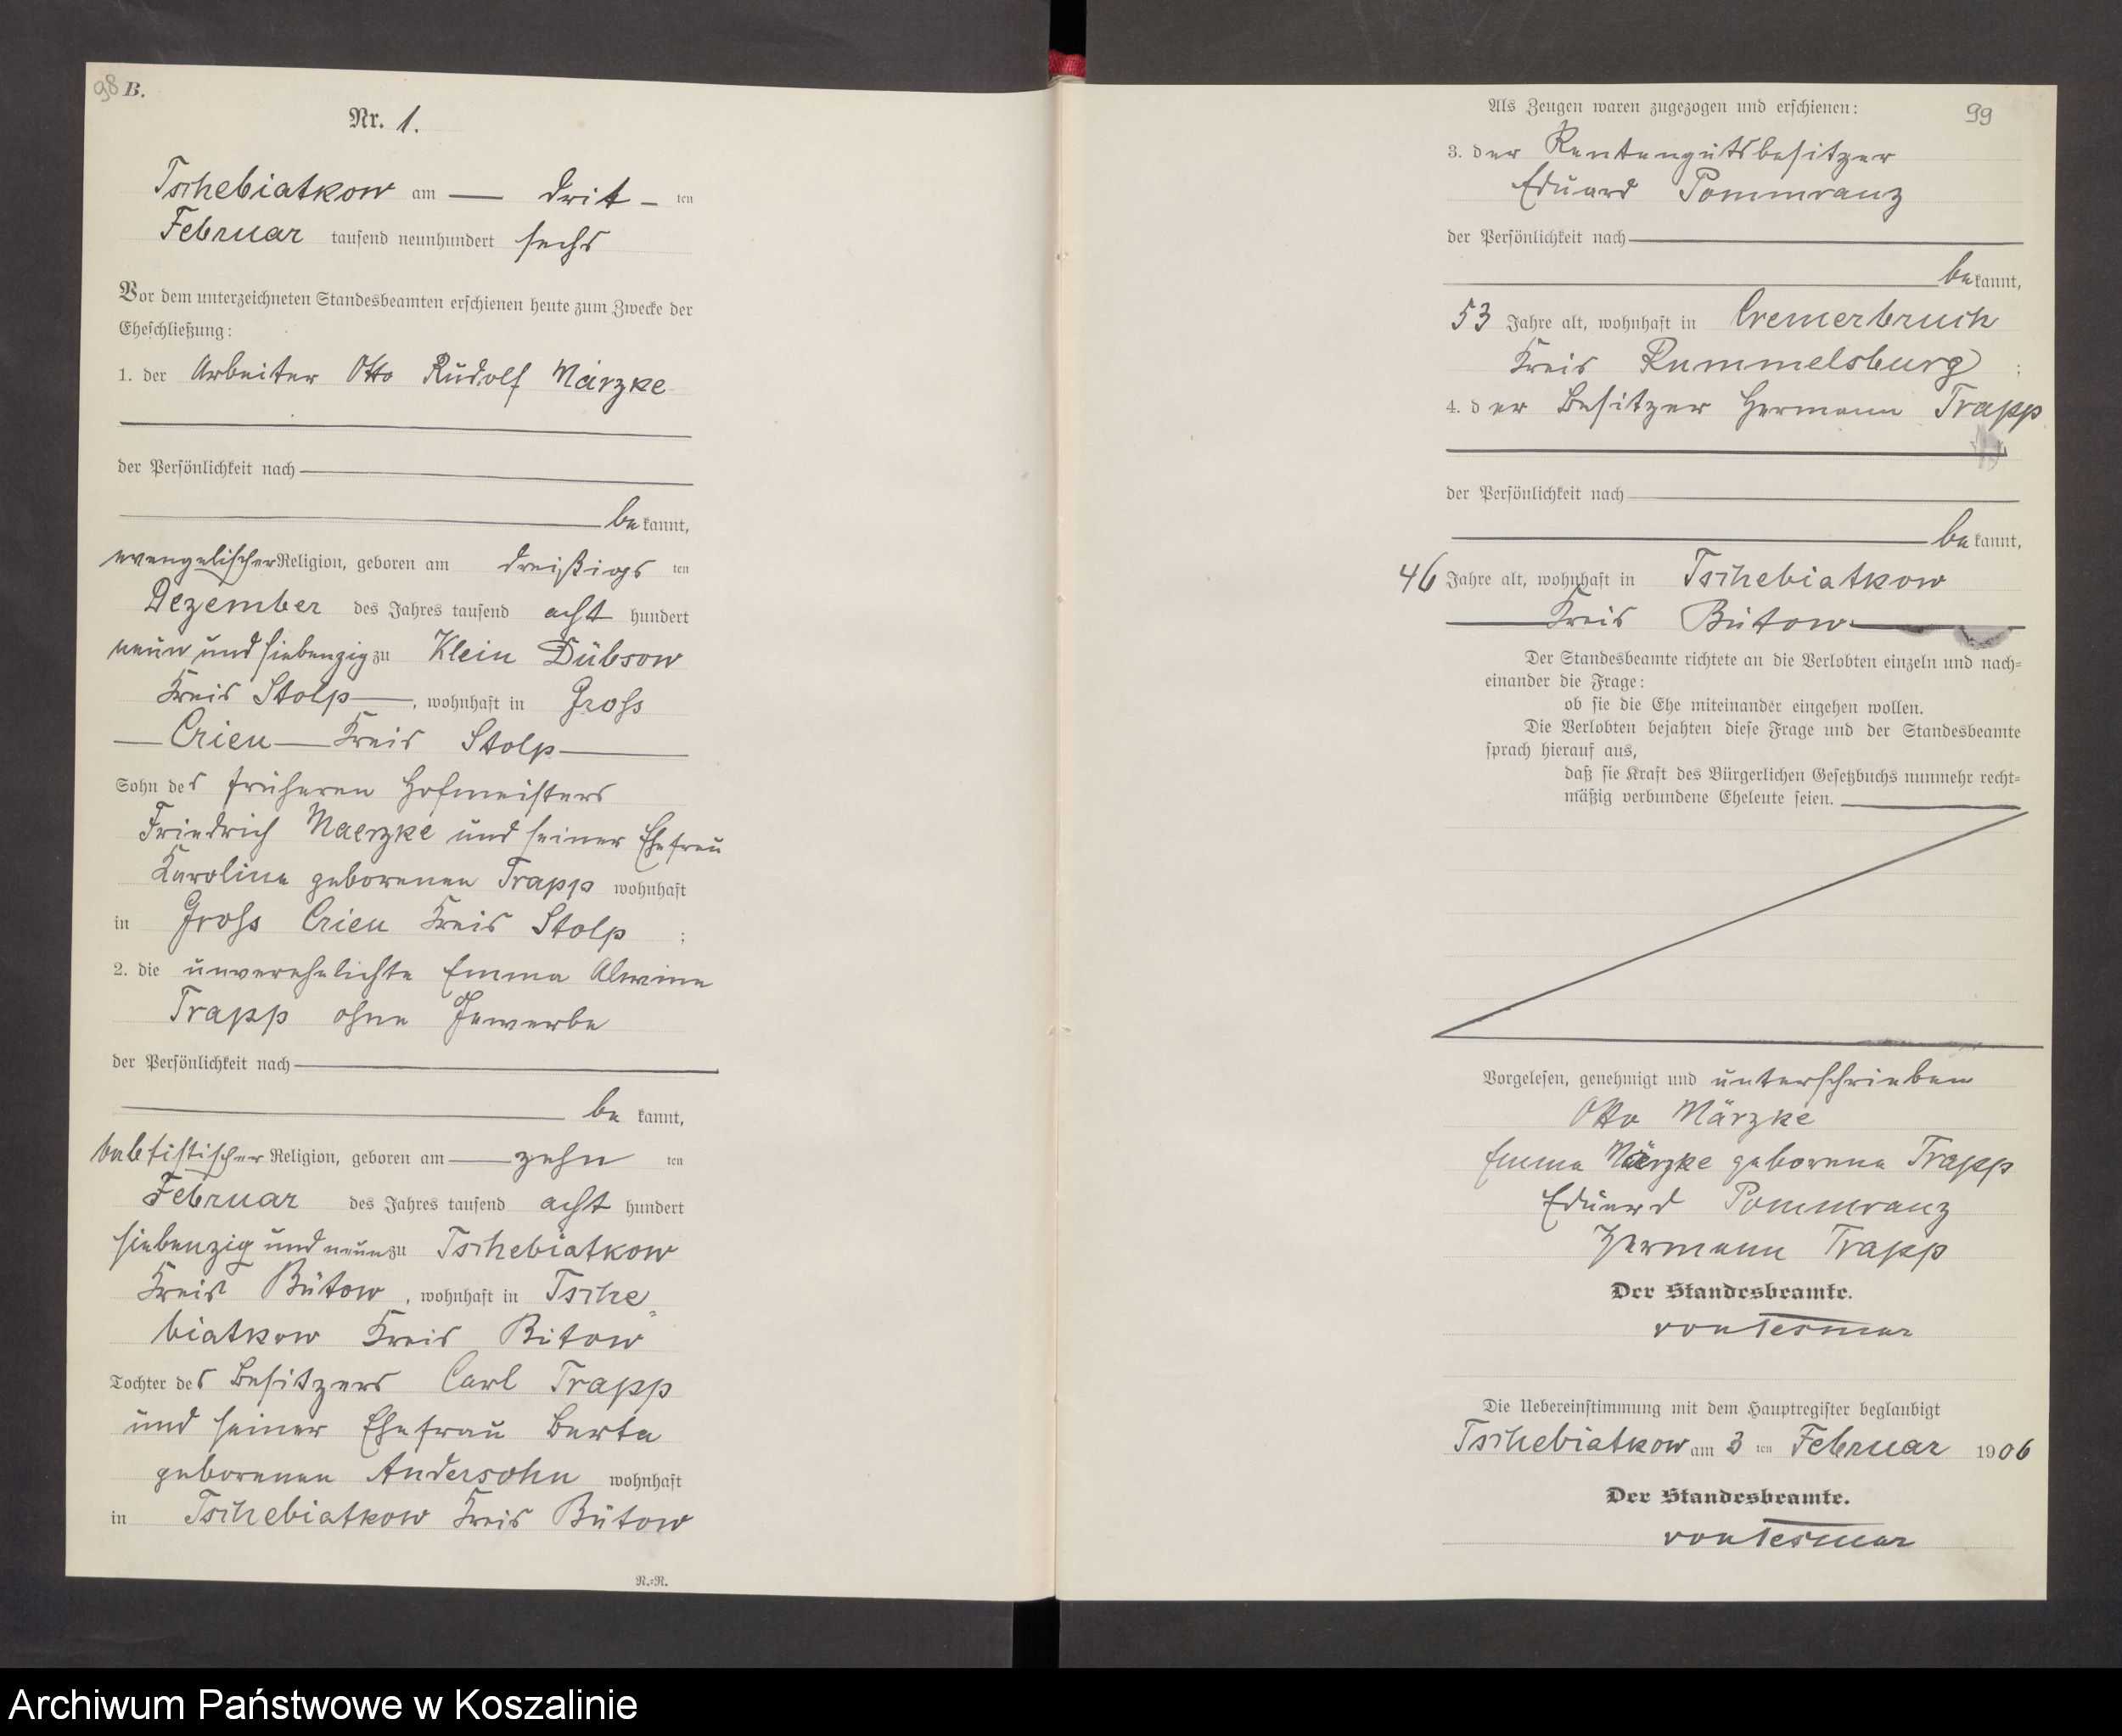 98 B.
Nr. 1.
Tschebiatkow am — drit - ten
Februar tausend neunhundert sechs
Vor dem unterzeichneten Standesbeamten erschienen heute zum Zwecke der
Eheschließung:
1. der Arbeiter Otto Rudolf Märzke
der Persönlichkeit nach
be kannt,
evangelischer Religion, geboren am dreißigs ten
Dezember des Jahres tausend acht hundert
neun und siebenzig zu Klein Dübsow
Kreis Stolp, wohnhaft in Gross
Crien Kreis Stolp
Sohn des früheren Hofmeisters
Friedrich Maerzke und seiner Ehefrau
Karoline geborenen Trapp wohnhaft
in Gross Crien Kreis Stolp ;
2. die unverehelichte Emma Alwine
Trapp ohne Gewerbe
der Persönlichkeit nach
be kannt,
babtistischer Religion, geboren am zehn ten
Februar des Jahres tausend acht hundert
siebenzig und neun zu Tschebiatkow
Kreis Bütow, wohnhaft in Tsche=
biatkow Kreis Bütow
Tochter des Besitzers Carl Trapp
und seiner Ehefrau Berta
geborenen Andersohn wohnhaft
in Tschebiatkow Kreis Bütow
N.=N.
99
Als Zeugen waren zugezogen und erschienen:
3. der Rentengutsbesitzer
Eduard Pommranz
der Persönlichkeit nach
be kannt,
53 Jahre alt, wohnhaft in Cremerbruch
Kreis Rummelsburg ;
4. der Besitzer Hermann Trapp
der Persönlichkeit nach
be kannt,
46 Jahre alt, wohnhaft in Tschebiatkow
Kreis Bütow
Der Standesbeamte richtete an die Verlobten einzeln und nach=
einander die Frage:
ob sie die Ehe miteinander eingehen wollen.
Die Verlobten bejahten diese Frage und der Standesbeamte
sprach hierauf aus,
daß sie Kraft des Bürgerlichen Gesetzbuchs nunmehr recht=
mäßig verbundene Eheleute seien.
Vorgelesen, genehmigt und unterschrieben
Otto Märzke
Emma Märzke geborene Trapp
Eduard Pommranz
Hermann Trapp
Der Standesbeamte.
von Tesmar
Die Uebereinstimmung mit dem Hauptregister beglaubigt
Tschebiatkow am 3 ten Februar 1906
Der Standesbeamte.
von Tesmar
Archiwum Państwowe w Koszalinie